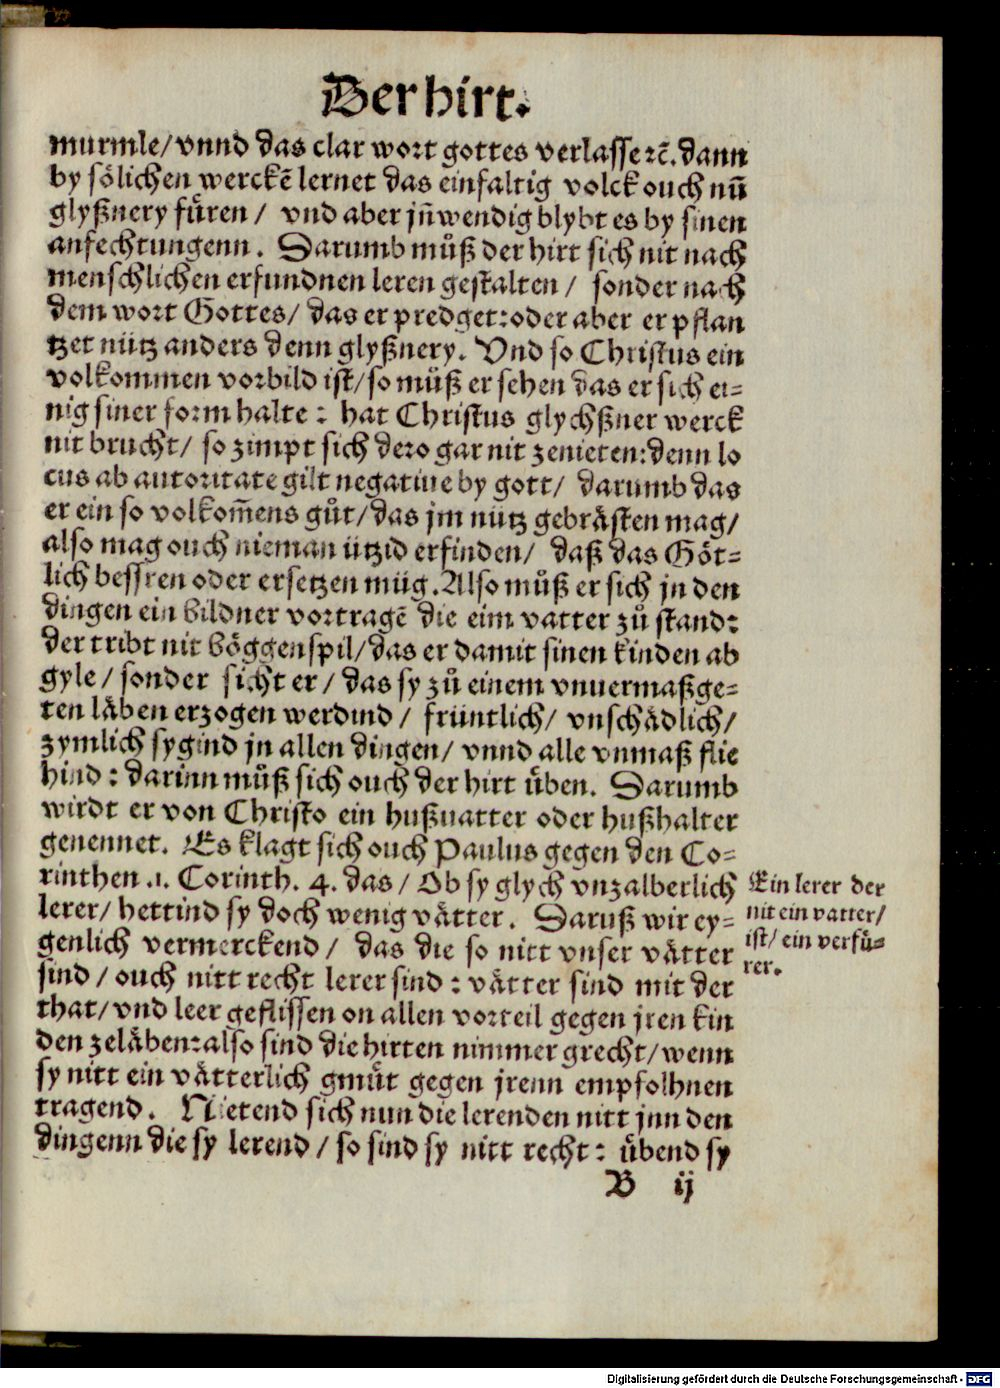 Der hirt.
murmle/ vnnd das clar wort gottes verlasse ꝛc̄. dann
by soͤlichen werckē lernet das einfaltig volck ouch nūn
glyßnery fuͤren/ vnd aber jn̄wendig blybt es by sinen
anfechtungenn. Darumb muͦß der hirt sich nit nach
menschlichen erfundnen leren gestalten/ sonder nach
dem wort Gottes/ das er predget: oder aber er pflan
tzet nütz anders denn glyßnery. Vnd so Christus ein
volkommen vorbild ist/ so muͦß er sehen das er sich ei⸗
nig siner form halte: hat Christus glychßner werck
nit brucht/ so zimpt sich dero gar nit zenieten: denn lo
cus ab autoritate gilt negatiue by gott/ darumb das
er ein so volkom̄ens guͦt/ das jm nütz gebrästen mag/
also mag ouch nieman ützid erfinden/ daß das Goͤt⸗
lich bessren oder ersetzen müg. Also muͦß er sich jn den
dingen ein bildner vortragē die eim vatter zuͦ stand:
der tribt nit boͤggenspil/ das er damit sinen kinden ab
gyle/ sonder sicht er/ das sy zuͦ einem vnuermaßge⸗
ten läben erzogen werdind/ früntlich/ vnschädlich/
zymlich sygind jn allen dingen/ vnnd alle vnmaß flie
hind: darinn muͦß sich ouch der hirt uͤben. Darumb
wirdt er von Christo ein hußuatter oder hußhalter
genennet. Es klagt sich ouch Paulus gegen den Co⸗
rinthen .1. Corinth. 4. das/ Ob sy glych vnzalberlich
lerer/ hettind sy doch wenig vätter. Daruß wir ey⸗
genlich vermerckend/ das die so nitt vnser vätter
sind/ ouch nitt recht lerer sind: vätter sind mit der
that/ vnd leer geflissen on allen vorteil gegen jren kin
den zeläben: also sind die hirten nimmer grecht/ wenn
sy nitt ein vätterlich gmuͤt gegen jrenn empfolhnen
tragend. Nietend sich nun die lerenden nitt jnn den
dingenn die sy lerend/ so sind sy nitt recht: uͤbend sy
Ein lerer der
nit ein vatter/
ist/ ein verfuͤ⸗
rer.
B ij
Digitalisierung gefördert durch die Deutsche Forschungsgemeinschaft - DFG